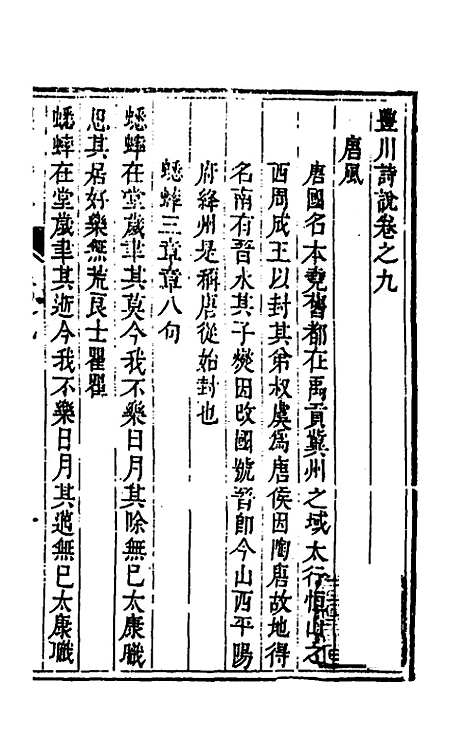 豐川詩說卷之九
唐風
唐國名本堯舊都在禹貢冀州之域太行恒山之
西周成王以封其弟叔虞為唐侯因陶唐故地得
名南有晉水其子燮因改國號晉卽今山西平陽
府絳州是稱唐從始封也
蟋蟀三章章八句
蟋蟀在堂歲聿其莫今我不樂日月其除無已太康職
思其居好樂無荒良士瞿瞿
蟋蟀在堂歲聿其逝今我不樂日月其邁無已太康職